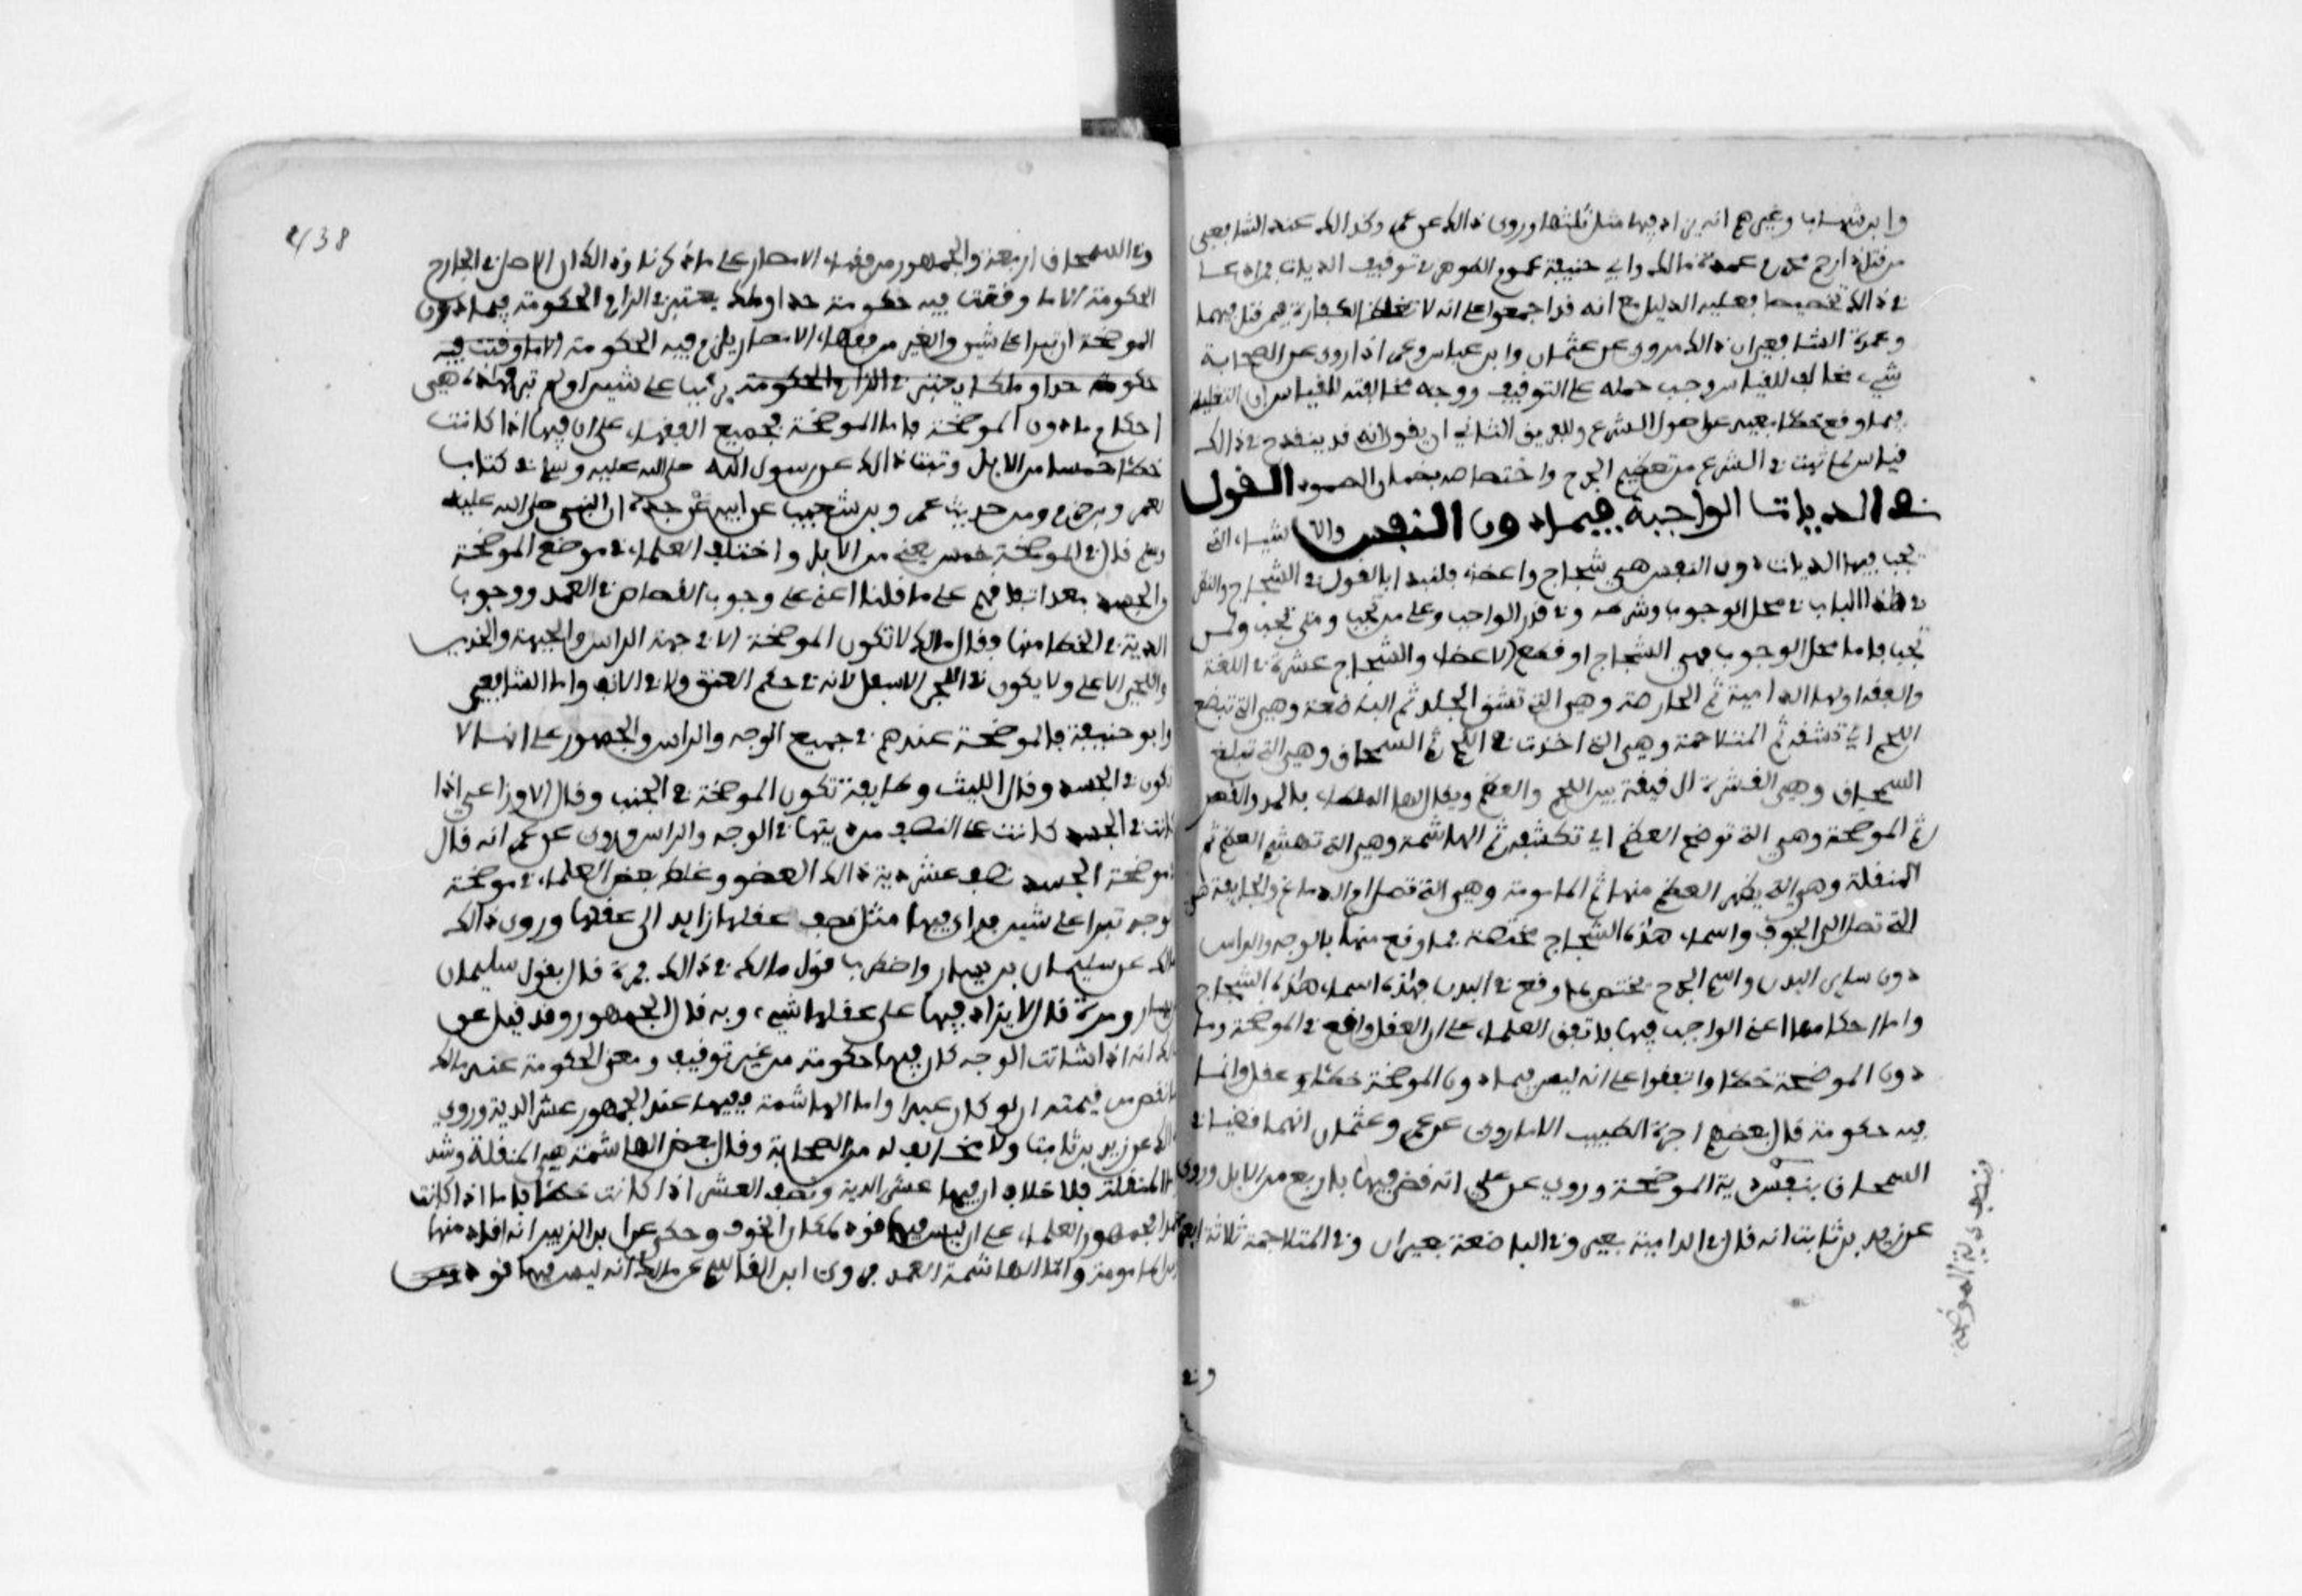 وابن شهاب وغيرهم انه يزاد فيها مثل ثلثها وروى ذالك عن عمر وكذالك عند الشافعي
من قتل ذا رحم محرم عمدة مالك وابي حنيفة عموم الظواهر في توقيف الديات فمن ادعا
في ذالك تخصيصا فعليه الدليل مع انه قد اجمعوا على انه لا تغلظ الكفارة فيمن قتل فيهما
وعمدة الشافعي ان ذالك مروي عن عثمان وابن عباس وعمر اذا روي عن الصحابة
شيء مخالف للقياس وجب حمله على التوقيف ووجه مخالفته للقياس ان التغليظ
فيما وقع خطا بعيد عن اصول الشرع وللفريق الثاني ان يقول انه قد ينقدح في ذالك
قياس لما ثبت في الشرع من تعظيم الحرم واختصاصه بضمان الصيود القول
في الديات الواجبة فيما دون النفس والاشياء التي
تجب فيها الديات دون النفس هي شجاج واعضاء فلنبدا بالقول في الشجاج والنظر
في هذا الباب في محل الوجوب وشرطه وفي قدر الواجب وعلى من تجب ومتى تجب ولمن
تجب فاما محل الوجوب فهي الشجاج او قطع الاعضاء والشجاج عشرة في اللغة
والفقه اولها الدامية ثم الحارصة وهي التي تشق الجلد ثم الباضعة وهي التي تبضع
اللحم اي تشقه ثم المتلاحمة وهي التي اخذت في اللحم ثم السمحاق وهي التي تبلغ
السمحاق وهي القشرة الرقيقة بين اللحم والعظم ويقال لها الملطاء بالمد والقصر
ثم الموضحة وهي التي توضح العظم اي تكشفه ثم الهاشمة وهي التي تهشم العظم ثم
المنقلة وهي التي يظهر العظم منها ثم المامومة وهي التي تصل ام الدماغ والجايفة هي
التي تصل الى الجوف واسماء هذه الشجاج مختصة بما وقع منها بالوجه والراس
دون ساير البدن واسم الجرح يختص بما وقع في البدن فهذه اسماء هذه الشجاج
واما احكامها اعني الواجب فيها باتفق العلماء على ان العقل واقع في الموضحة وما
دون الموضحة خطا واتفقوا على انه ليس فيما دون الموضحة خطا وعقل وانما
فيه حكومة قال بعضهم اجرة الطبيب الا ما روي عن عمر وعثمان انهما قضيا في
السمحاق بنصف دية الموضحة وروي عن علي انه قضى فيها باربع من الابل وروي
عن زيد بن ثابت انه قال في الدامية بعير وفي الباضعة بعيران وفي المتلاحمة ثلاثة ابعرة
وفي
بنصف دية الموضحة
438
وفي السمحاق اربعة والجمهور من فقهاء الامصار على ما ذكرنا وذالك ان الاصل في الجراح
الحكومة الا ما وقعت فيه حكومة حدا ومالك يعتبر في الزام الحكومة فيما دون
الموضحة ان تبرا على شين والغير من فقهاء الامصار يلزم فيه الحكومة الا ما وقتت فيه
حكومة حدا ومالك يعتبر في الزام الحكومة برئت على شين اولم تبر فهذه هي
احكام ما دون الموضحة فاما الموضحة فجميع الفقهاء على ان فيها اذا كانت
خطا خمسا من الابل وثبت ذالك عن رسول الله صلى الله عليه وسلم في كتاب
لعمر وبن حزم ومن حديث عمر وبن شعيب عن ابيه عن جده ان النبي صلى الله عليه
وسلم قال في الموضحة خمس يعني من الابل واختلف العلماء في موضع الموضحة
والجسد بعد اتفاقهم على ما قلنا اعني على وجوب القصاص في العمد ووجوب
الدية في الخطا منها وقال مالك لا تكون الموضحة الا في جهة الراس والجبهة والخدين
واللحي الاعلى ولا يكون في اللحي الاسفل لانه في حكم العنق ولا في الانف واما الشافعي
وابو حنيفة فالموضحة عندهم في جميع الوجه والراس والجمهور على انها لا
تكون في الجسد وقال الليث وطايفة تكون الموضحة في الجنب وقال الاوزاعي اذا
كانت في الجسد كانت على النصف من ديتها في الوجه والراس وروي عن عمر انه قال
في موضحة الجسد نصف عشر دية ذالك العضو وغلظ بعض العلماء في موضحة
الوجه تبرا على شين فراى فيها مثل نصف عقلها زايدا الى عقلها وروى ذالك
مالك عن سليمان بن يسار واضطرب قول مالك في ذالك فمرة قال بقول سليمان
بن يسار ومرة قال لا يزاد فيها على عقلها شيء وبه قال الجمهور وقد قيل عن
مالك انه اذا شانت الوجه كان فيها حكومة من غير توقيف ومعنى الحكومة عند مالك
ما نقص من قيمته ان لو كان عبدا واما الهاشمة ففيها عند الجمهور عشر الدية وروي
ذالك عن زيد بن ثابت ولا مخالف له من الصحابة وقال بعض الهاشمة هي المنقلة وشذ
واما المنقلة فلا خلاف ان فيها عشر الدية ونصف العشر اذا كانت خطا فاما اذا كانت
عمدا فجمهور العلماء على ان ليس فيها قود لمكان الخوف وحكي عن ابن الزبير انه اقاد منها
ومن المامومة واما الهاشمة في العمد فروى ابن القاسم عن مالك انه ليس فيها قود ومن